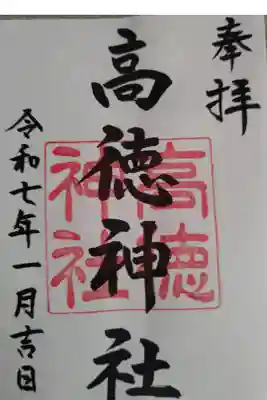 奉拝
高徳神社
高徳神社
令和七年一月吉日